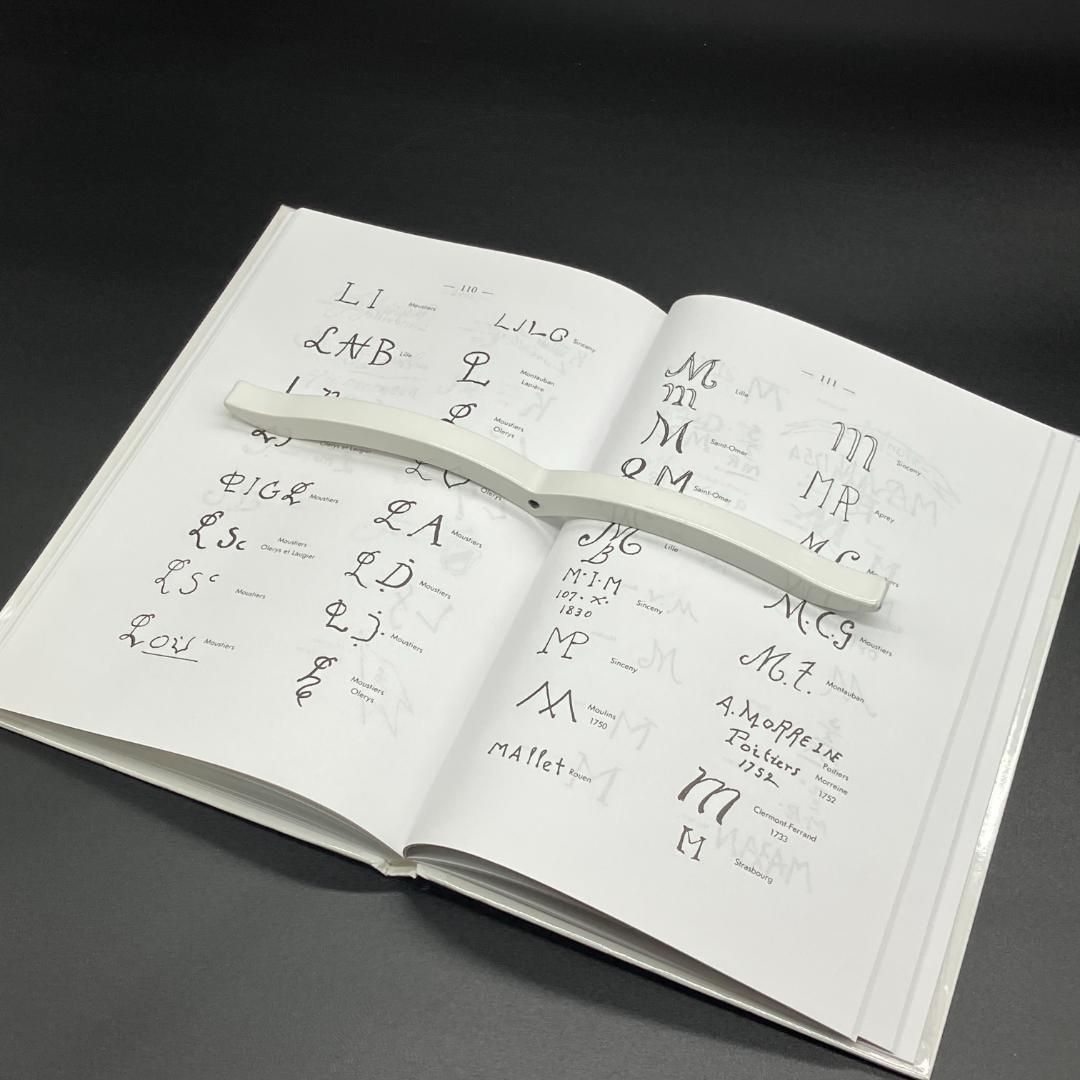 — 110 —
L I
Moustiers
L J L G
Sinceny
Lille
Montauban
Lapierre
Moustiers
Olerys
Olerys et Laugier
Olerys
PIGL
Moustiers
LA
Moustiers
LSc
Moustiers
Olerys et Laugier
LSc
Moustiers
LD
Moustiers
LJ.
Moustiers
Moustiers
Moustiers
Olerys
— 111 —
M
m
Lille
m
Sinceny
M
Saint-Omer
M
Saint-Omer
MR
Aprey
M
B
Lille
M·I·M
107·X·
1830
Sinceny
M.C.G
Moustiers
MP
Sinceny
M.F.
Montauban
M
Moulins
1750
A.MORREINE
Poitiers
1752
Poitiers
Morreine
1752
MAllet
Rouen
m
Clermont-Ferrand
1733
M
Strasbourg